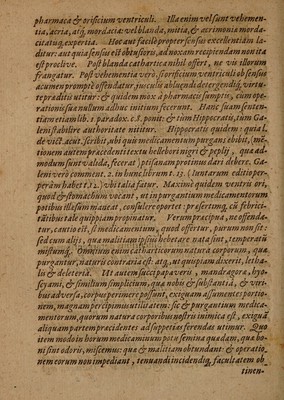 pharmaca & orificium ventriculi. Illa enim vel sunt vehemen-
tia, acria, atq; mordacia: vel blanda, mitia, & acrimonia morda-
citatuq; expertia. Hoc aut facilè propter sensus excellentiam la-
ditur: aut quia sensus est obtusioris, ad noxam recipiendam non ita
est proclive. Post blanda cathartica nihil offert, ne vis illorum
frangatur. Post vehementia verò, si orificium ventriculi ob sensus
acumen promptè offendatur, jusculis abluendi detergendiq; virtu-
te præditis utitur: & quidem mox à pharmacis sumptis, cum ope-
rationis suæ nullum adhuc initium fecerunt. Hanc suam senten-
tiam etiam lib. 1 paradox. c. 8. ponit: & tùm Hippocratis, tùm Ga-
leni stabilire authoritate nititur. Hippocratis quidem; quia l.
de vict. acut. scribit, ubi quis medicamentum purgans bibit, (mẽ-
tionem autem præcedenti textu hellebori nigri & pepliy, quæ ad-
modum sunt valida, fecerat) ptisanam pretinus dari debere. Ga-
leni verò comment. 2. in hunc librum t. 13. (Luntarum editio per-
perám habet t. 12.) ubi talia fatur. Maximè quidem ventris ori,
quod & stomachum vocant, ut in purgantium medicamentorum
potibus illæsum maneat, consulere oportet: præsertim, cũ febrici-
tãtibus tale quippiam propinatur. Verùm præcipua, ne offenda-
tur, cautio eſt, si medicamentum, quod offertur, purum non sit:
sed cum aliis, quæ malitiam ipsius hebetare nata sint, temperata
mistumq;. Omnium enim catharticorum natura corporum, quæ
purgantur, naturis contraria est: atq; ut quispiam dixerit, letha-
lis & deleteria. Ut autem succi papaveris, mandragoræ, hyo-
scyami, & similium simplicium, quæ nobis & substantiâ, & viri-
bus adversa, corpus perimere possunt, exiguam assumens portio-
nem, magnam percipimus utilitatem: sic & purgantium medica-
mentorum, quorum natura corporibus nostris inimica est, exiguã
aliquam partem præcidentes ad suppetias ferendas utimur. Quo
item modo in horum medicaminum potu semina quædam, quæ bo-
ni sint odoris, miscemus: quæ & malitiam obtundant: & operatio-
nem eorum non impediant, tenuandi incidendiq; facultatem ob
tinen-